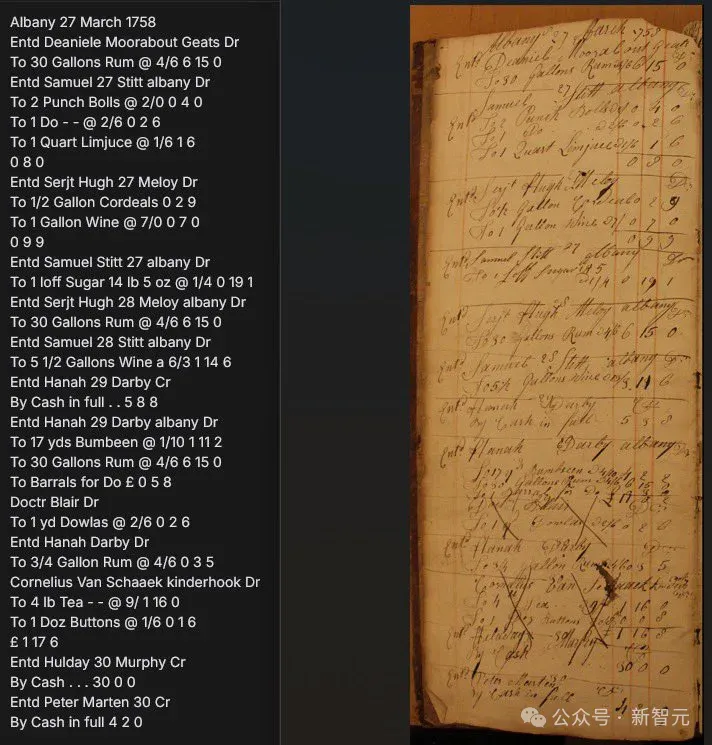 Albany 27 March 1758
Entd Deaniele Moorabout Geats Dr
To 30 Gallons Rum @ 4/6 6 15 0
Entd Samuel 27 Stitt albany Dr
To 2 Punch Bolls @ 2/0 0 4 0
To 1 Do - - @ 2/6 0 2 6
To 1 Quart Limjuce @ 1/6 1 6
0 8 0
Entd Serjt Hugh 27 Meloy Dr
To 1/2 Gallon Cordeals 0 2 9
To 1 Gallon Wine @ 7/0 0 7 0
0 9 9
Entd Samuel Stitt 27 albany Dr
To 1 loff Sugar 14 lb 5 oz @ 1/4 0 19 1
Entd Serjt Hugh 28 Meloy albany Dr
To 30 Gallons Rum @ 4/6 6 15 0
Entd Samuel 28 Stitt albany Dr
To 5 1/2 Gallons Wine a 6/3 1 14 6
Entd Hanah 29 Darby Cr
By Cash in full . . 5 8 8
Entd Hanah 29 Darby albany Dr
To 17 yds Bumbeen @ 1/10 1 11 2
To 30 Gallons Rum @ 4/6 6 15 0
To Barrals for Do £ 0 5 8
Doctr Blair Dr
To 1 yd Dowlas @ 2/6 0 2 6
Entd Hanah Darby Dr
To 3/4 Gallon Rum @ 4/6 0 3 5
Cornelius Van Schaaek kinderhook Dr
To 4 lb Tea - - @ 9/ 1 16 0
To 1 Doz Buttons @ 1/6 0 1 6
£ 1 17 6
Entd Hulday 30 Murphy Cr
By Cash . . . 30 0 0
Entd Peter Marten 30 Cr
By Cash in full 4 2 0
Albany 27 March 758
Entd Deaniel Moorabout Geats
To 30 Gallons Rum 4/6 6 15 0
Entd Samuel 27 Stitt albany Dr
To 2 Punch Bolls 0 4 0
To 1 Do 2/6 0 2 6
To 1 Quart Limjuce 1 6
0 8 0
Entd Serjt Hugh Meloy Dr
Gallon Cordeals 0 2 9
To 1 Gallon Wine 0 7 0
0 9 9
Samuel Stitt 27 albany Dr
To 1 Loff Sugar
1/4 0 19 1
Entd Serjt Hugh 28 Meloy albany
To 30 Gallons Rum 4/6 6 15 0
Entd Samuel 28 Stitt albany Dr
To 5½ Gallons Wine
Entd Hanah Darby
By Cash in full 5
Entd Hanah Darby albany
To 17 yd
To 30 Gallons Rum
Blair
To 1
Entd Hanah Darby
To 3/4 Gallon Rum 4/6 0 3 5
Cornelius Van
To 4 Tea 9/ 1 16 0
To 1 Buttons
Murphy
By Cash 30 0 0
Entd Peter Marten
By Cash in full
公众号 · 新智元